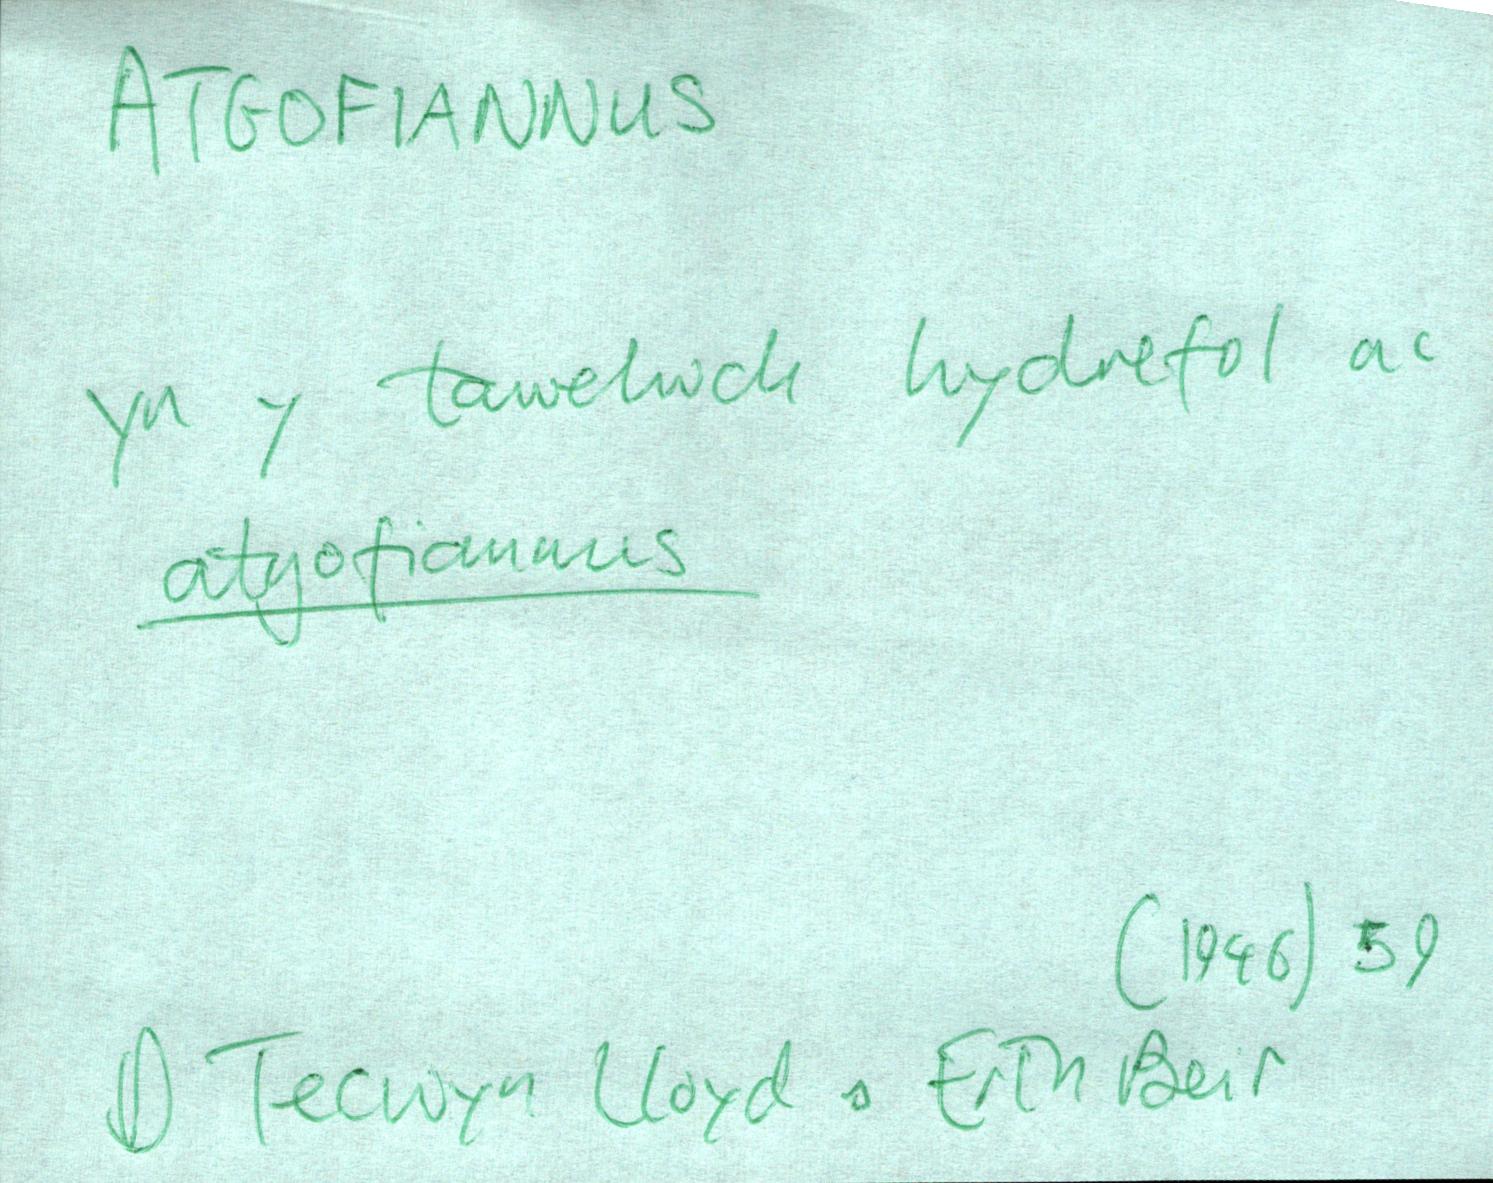 ATGOFIANNUS
yn y tawelwch hydrefol ac
atgofiannus
(1946) 59
D Tecwyn Lloyd : Erthn Beir